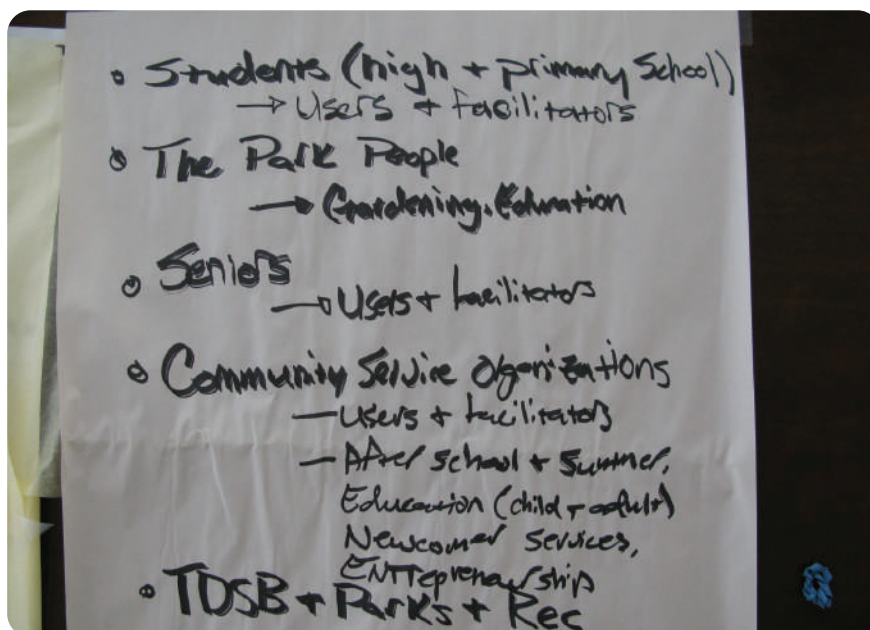 • Students (high + primary School)
→ Users + Facilitators
• The Park People
→ Gardening. Education
• Seniors
→ Users + facilitators
• Community Service Organizations
— Users + facilitators
— After school + Summer,
Education (child + adult)
Newcomer Services,
ENTrepreneurship
• TDSB + Parks + Rec